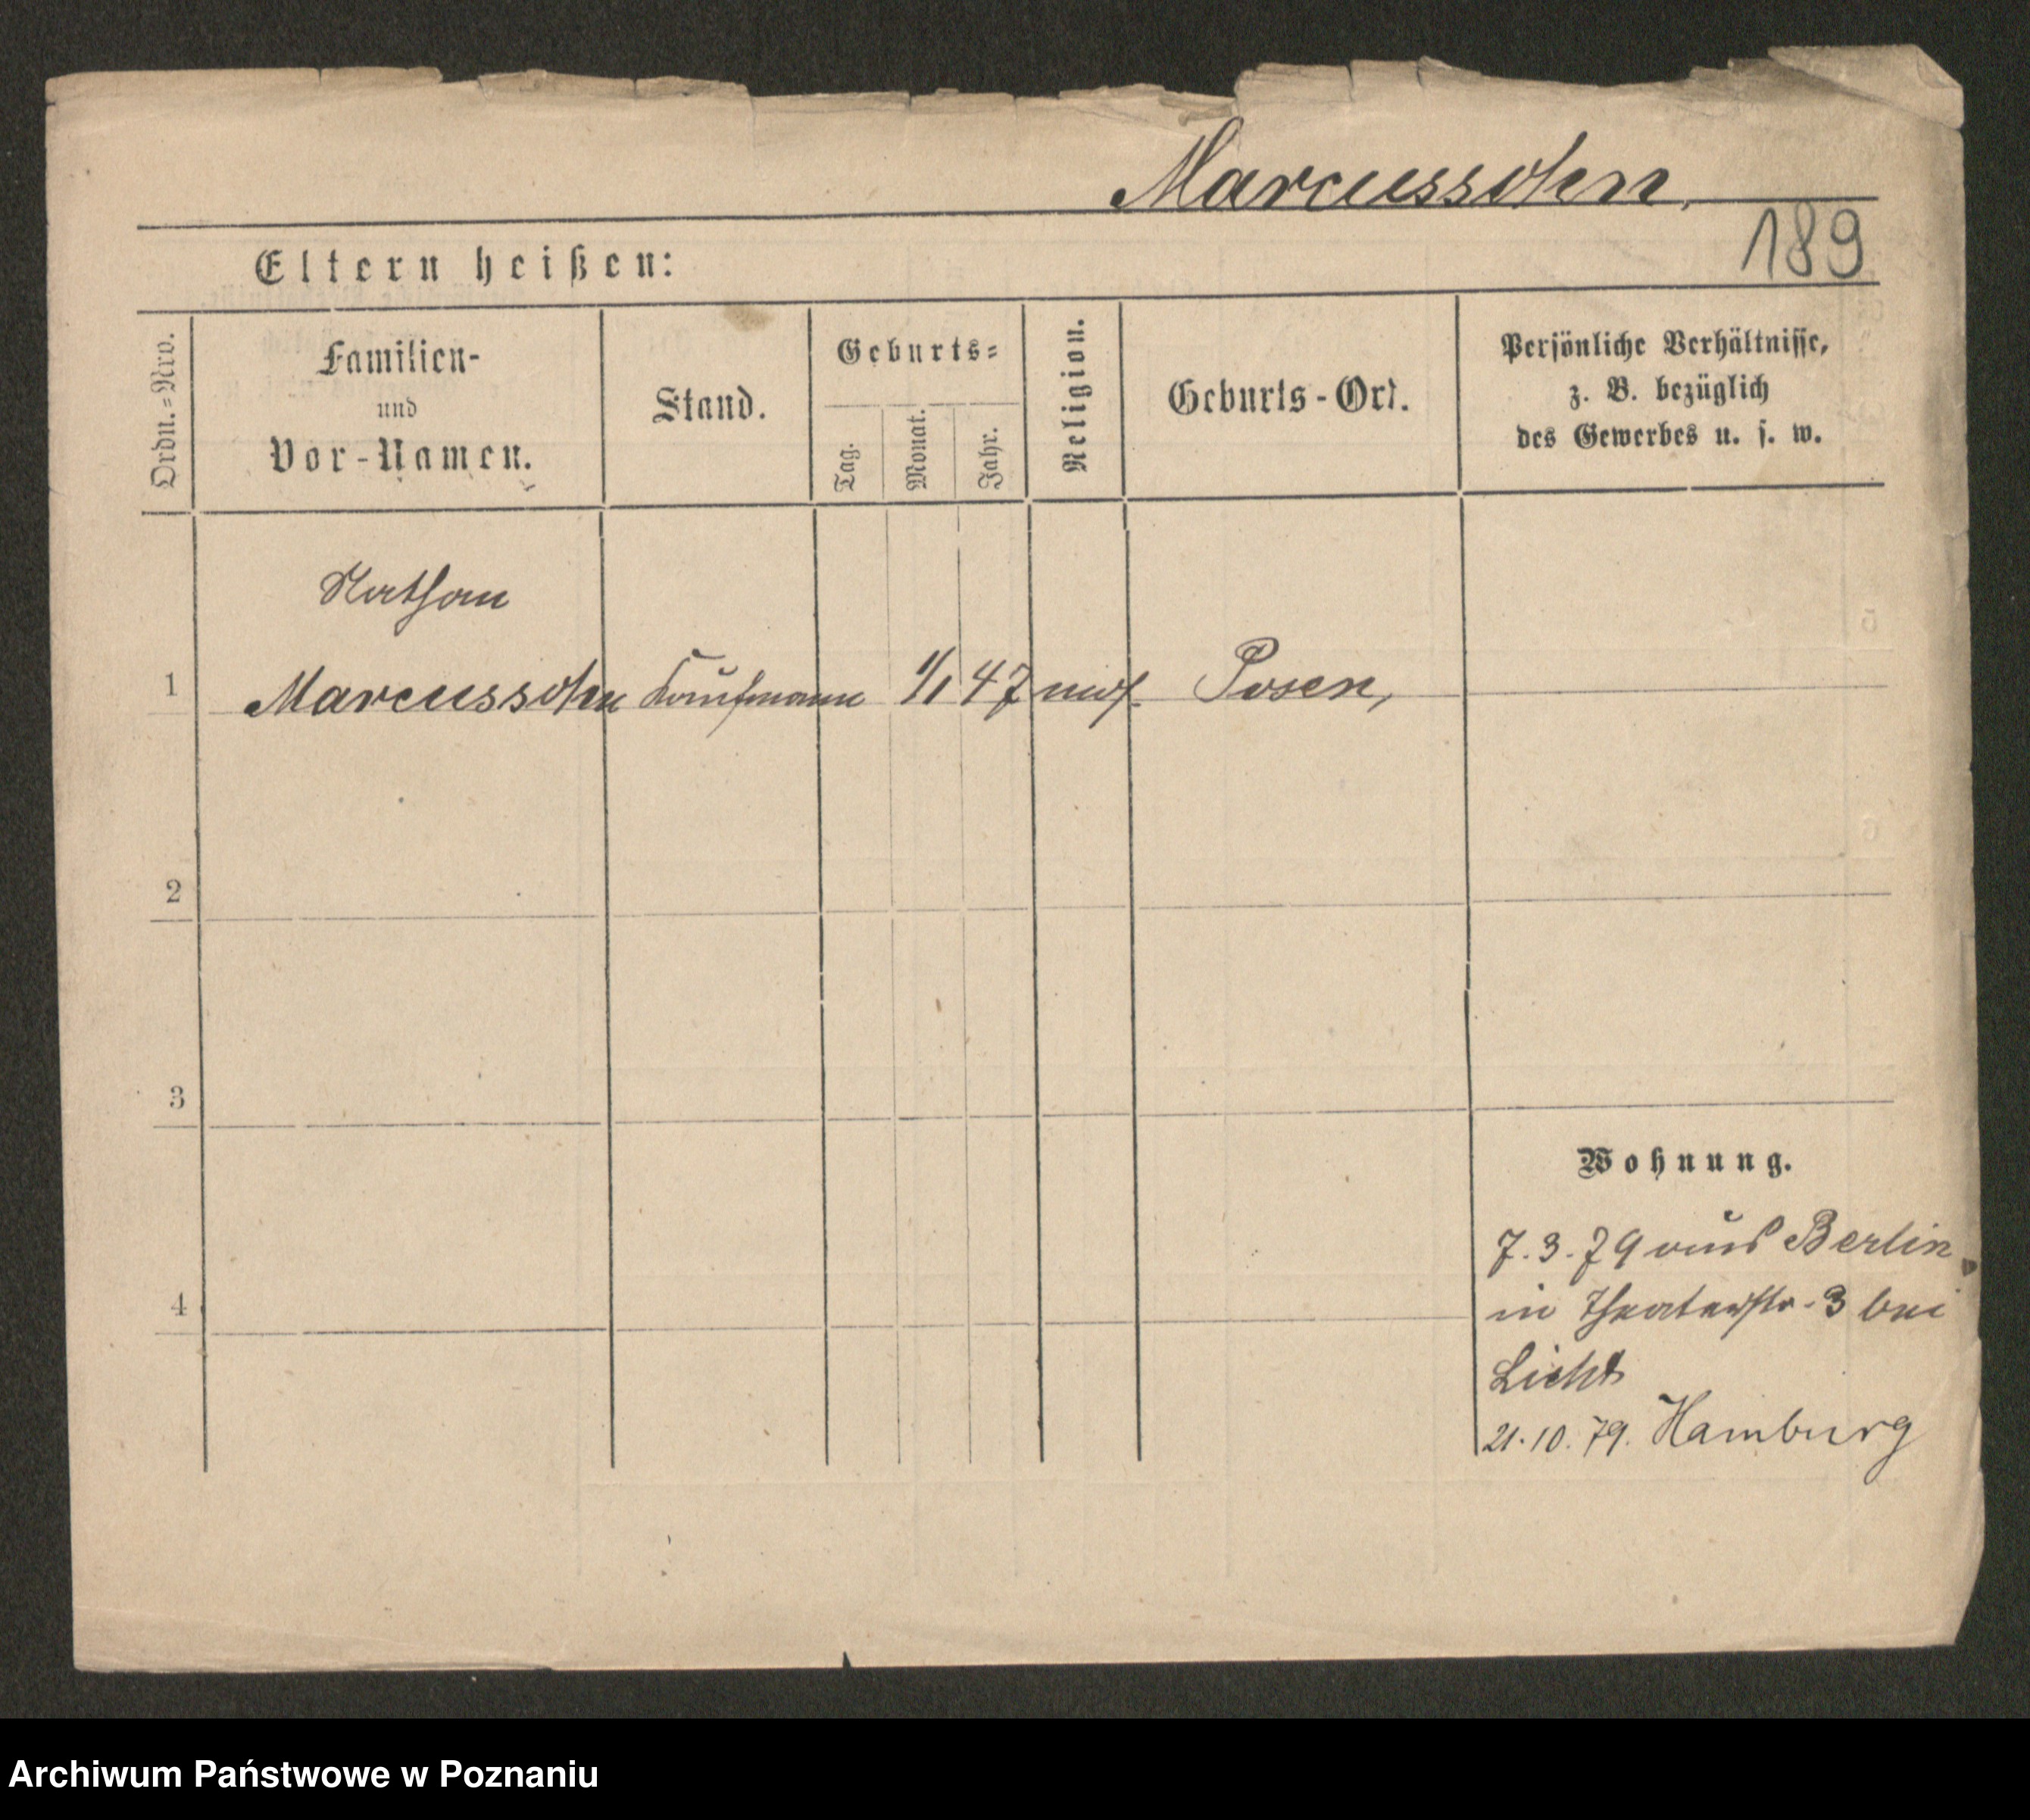 Marcussohn,
189
Eltern heißen:
Ordn.=Nro.
Familien-
und
Vor-Namen.
Stand.
Geburts=
Tag.
Monat.
Jahr.
Religion.
Geburts-Ort.
Persönliche Verhältnisse,
z. B. bezüglich
des Gewerbes u. s. w.
Nathan
1 Marcussohn Kaufmann 1/1 47 mos. Posen,
2
3
4
Wohnung.
7.3.79 aus Berlin
in Theaterstr. 3 bei
Licht
21.10.79. Hamburg
Archiwum Państwowe w Poznaniu